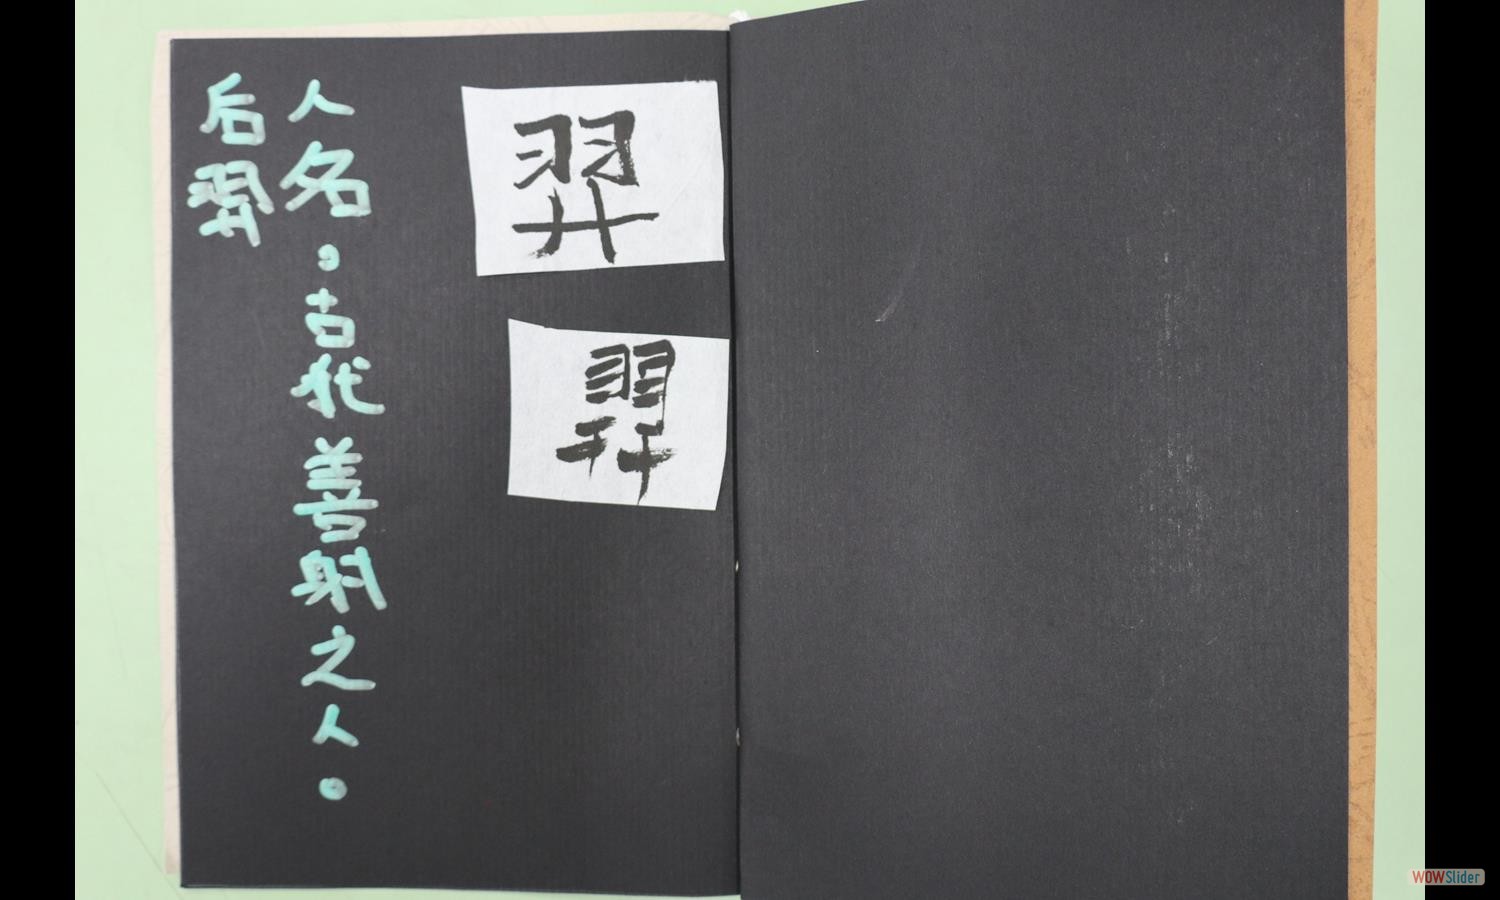 羿
羿
人名。古代善射之人。
后羿
WOWSlider